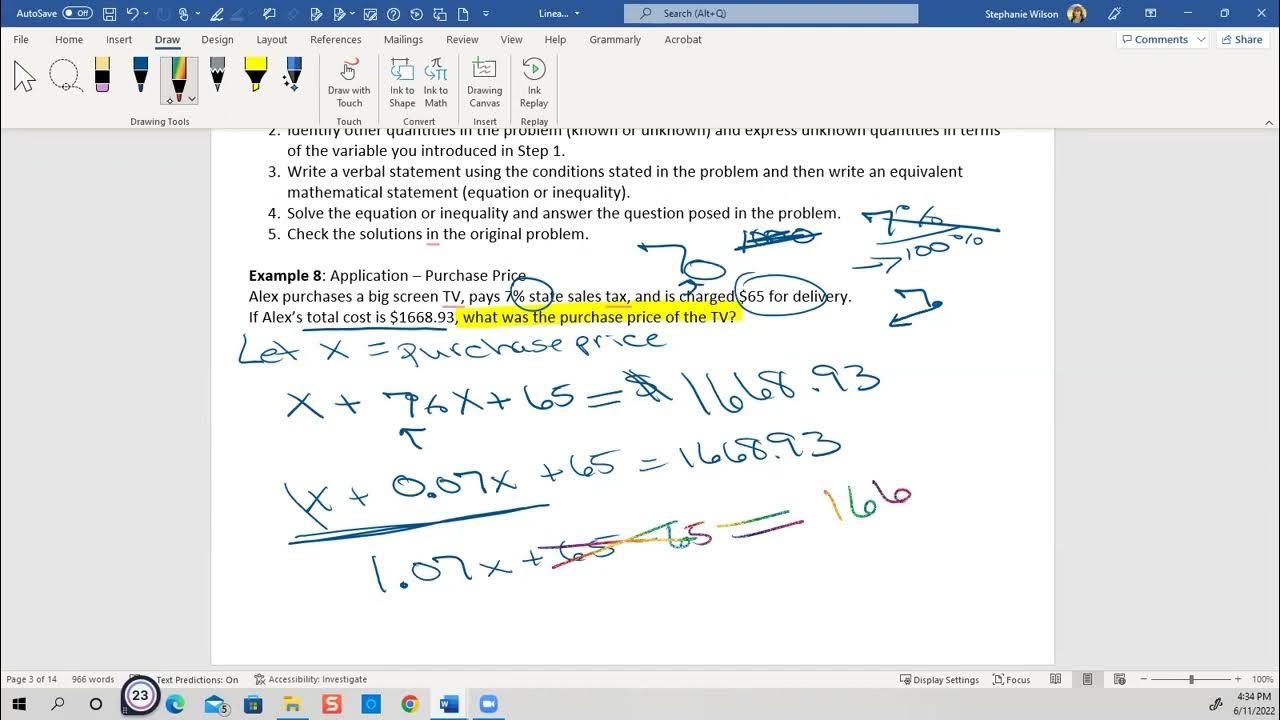 AutoSave Off Linea... Search (Alt+Q) Stephanie Wilson
File Home Insert Draw Design Layout References Mailings Review View Help Grammarly Acrobat Comments Share
Draw with Touch Ink to Shape Ink to Math Drawing Canvas Ink Replay
Drawing Tools Touch Convert Insert Replay
2. Identify other quantities in the problem (known or unknown) and express unknown quantities in terms
of the variable you introduced in Step 1.
3. Write a verbal statement using the conditions stated in the problem and then write an equivalent
mathematical statement (equation or inequality).
4. Solve the equation or inequality and answer the question posed in the problem.
5. Check the solutions in the original problem.
7%
100%
Example 8: Application – Purchase Price
Alex purchases a big screen TV, pays 7% state sales tax, and is charged $65 for delivery.
If Alex's total cost is $1668.93, what was the purchase price of the TV?
Let x = purchase price
x + 7% x + 65 = $ 1668.93
1x + 0.07x + 65 = 1668.93
1.07x + 65 - 65 = 166
Page 3 of 14 966 words Text Predictions: On Accessibility: Investigate Display Settings Focus 100%
23 5 4:34 PM
6/11/2022